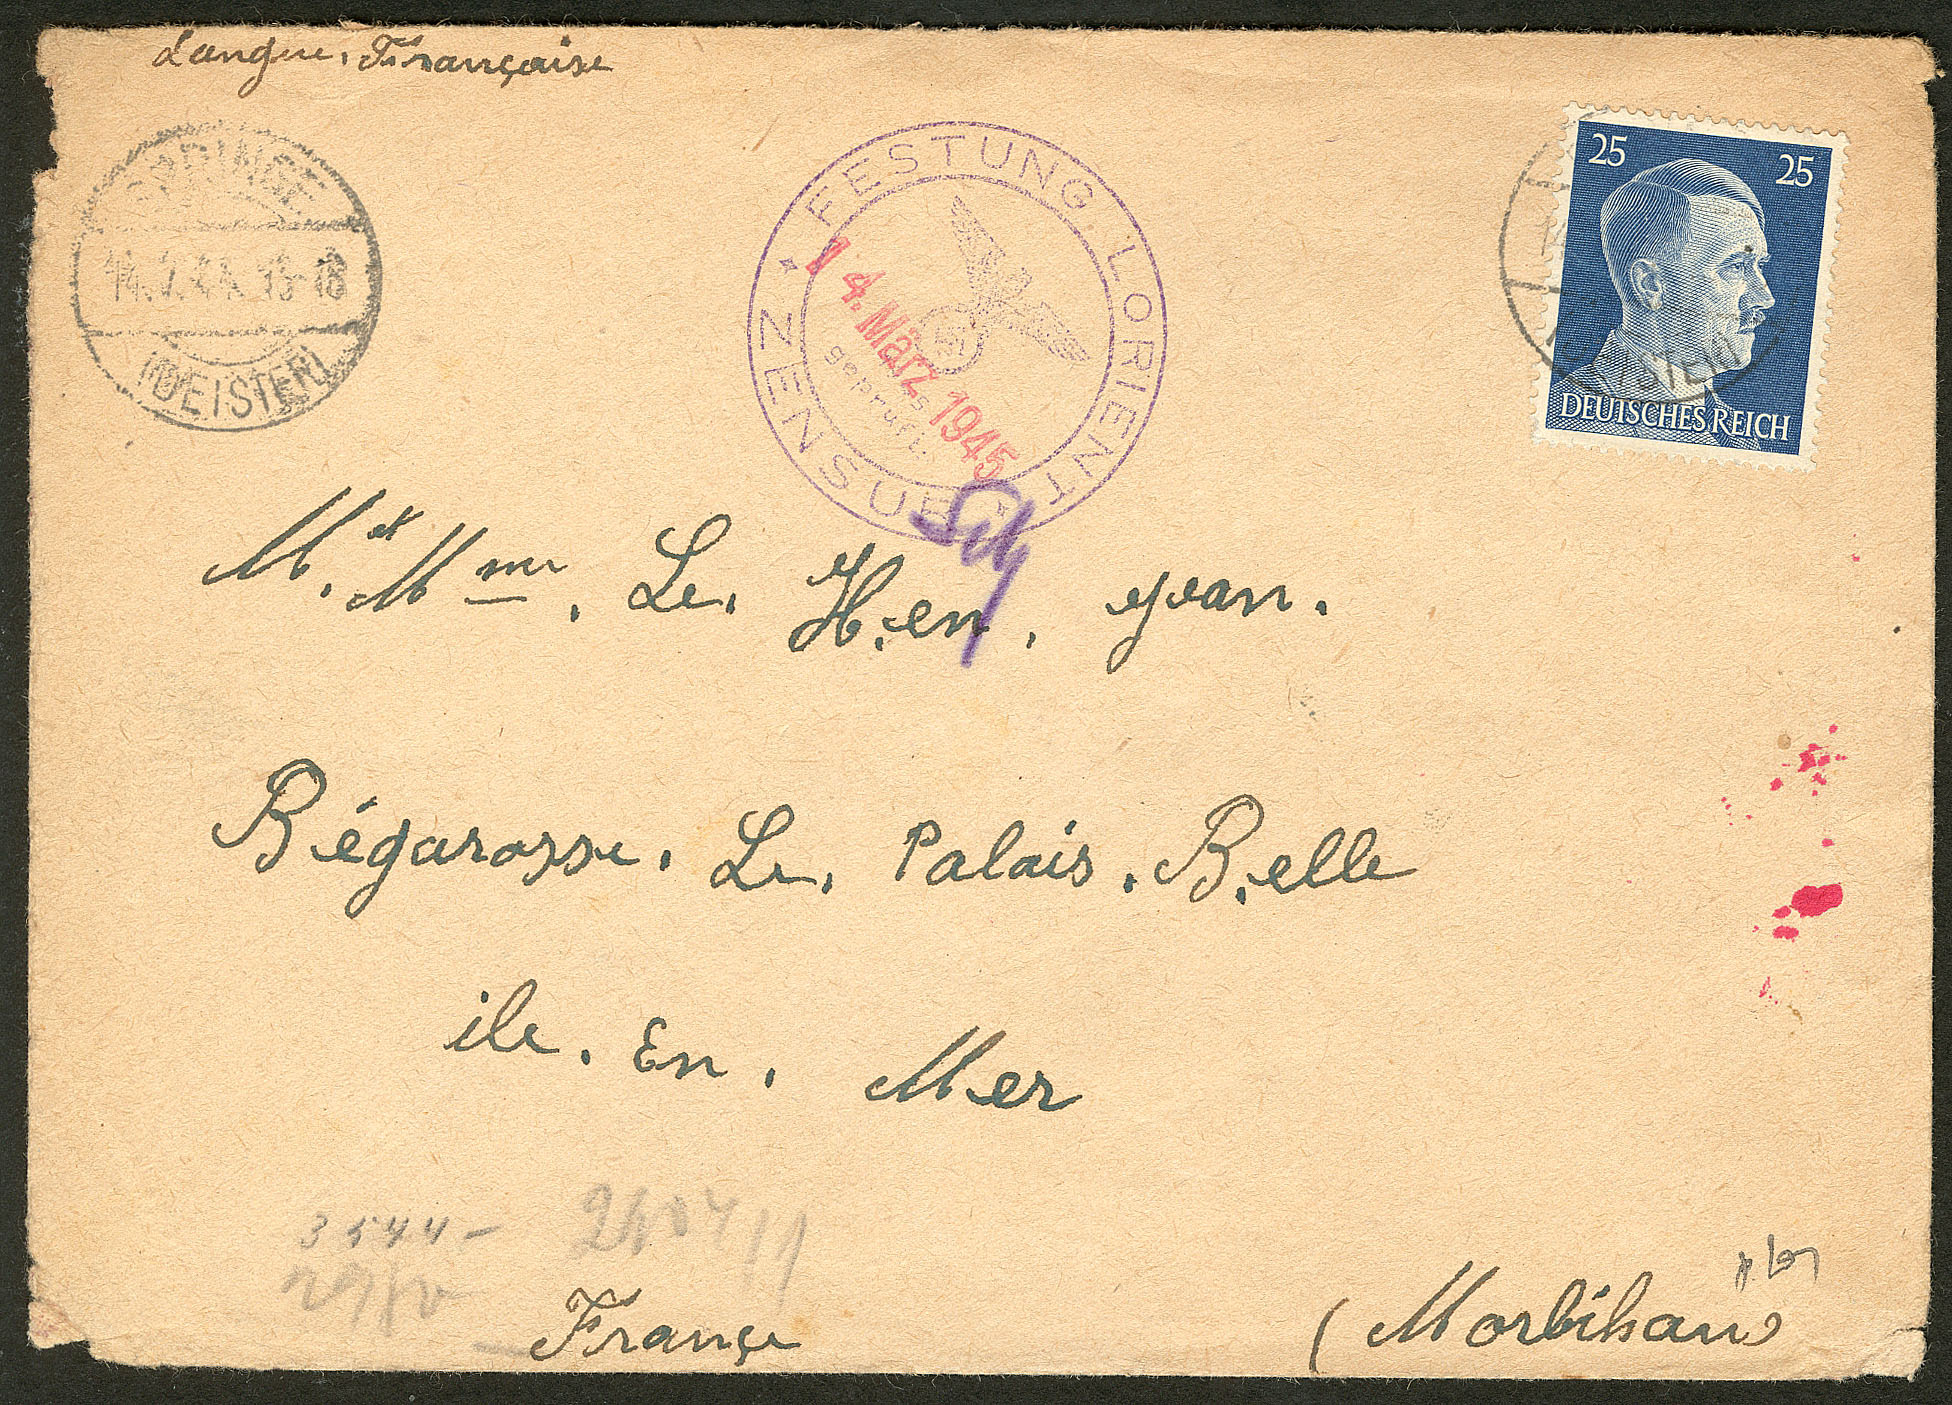 Langue. Française
SPRINGE
14.7.44. 15-18
(DEISTER)
FESTUNG. LORIENT
ZENSUR
14. März 1945
geprüft
25 25
DEUTSCHES REICH
(DEISTER)
M. et Mme. Le. Hen. yvan.
Bégarosse. Le. Palais. Belle
ile. En. Mer
3544-
France
(Morbihan)